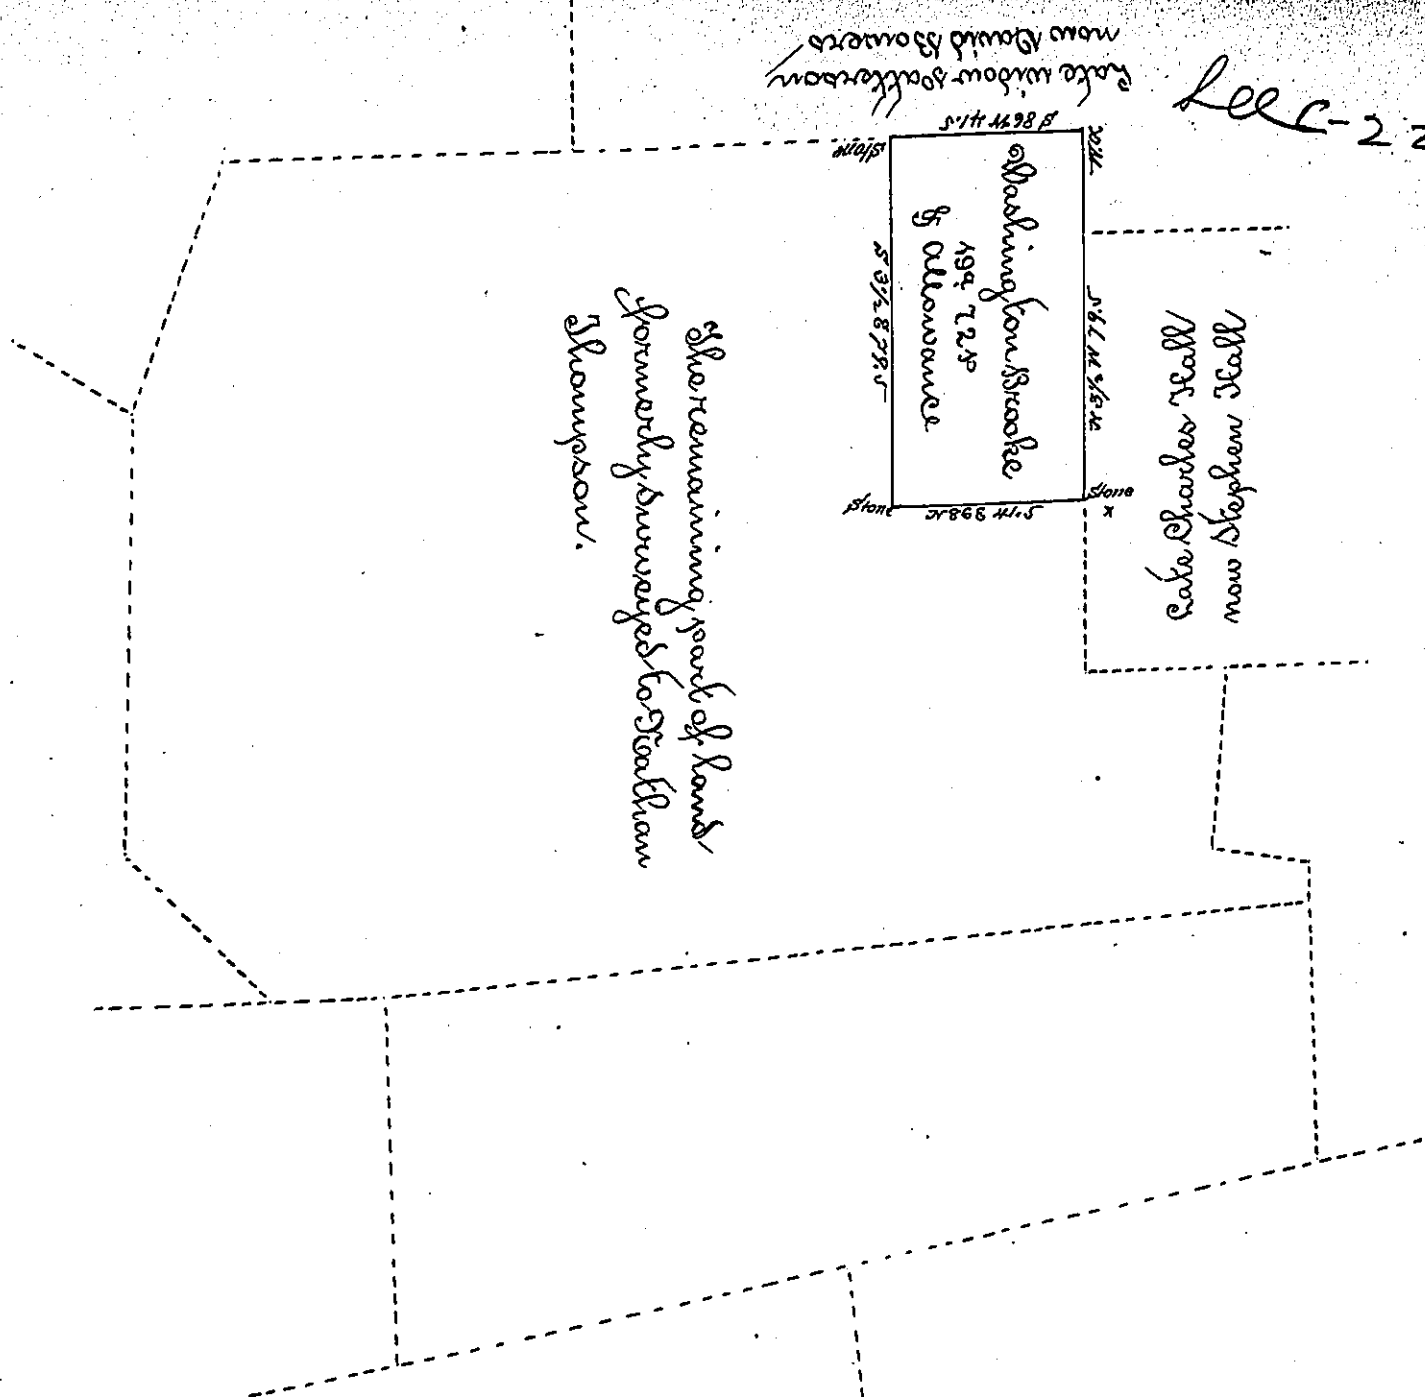 See C-22
Late widow Patterson
now David Bowers
S 86 W 41.5
W.O.
Stone
Washington Brooke
19a 72p
& Allowance
S 3½ E 79.5
N 3½ W 79.5
Stone
x
Stone
N 86 E 41.5
Late Charles Hall
now Stephen Hall
The remaining part of land
formerly surveyed to Nathan
Thompson.